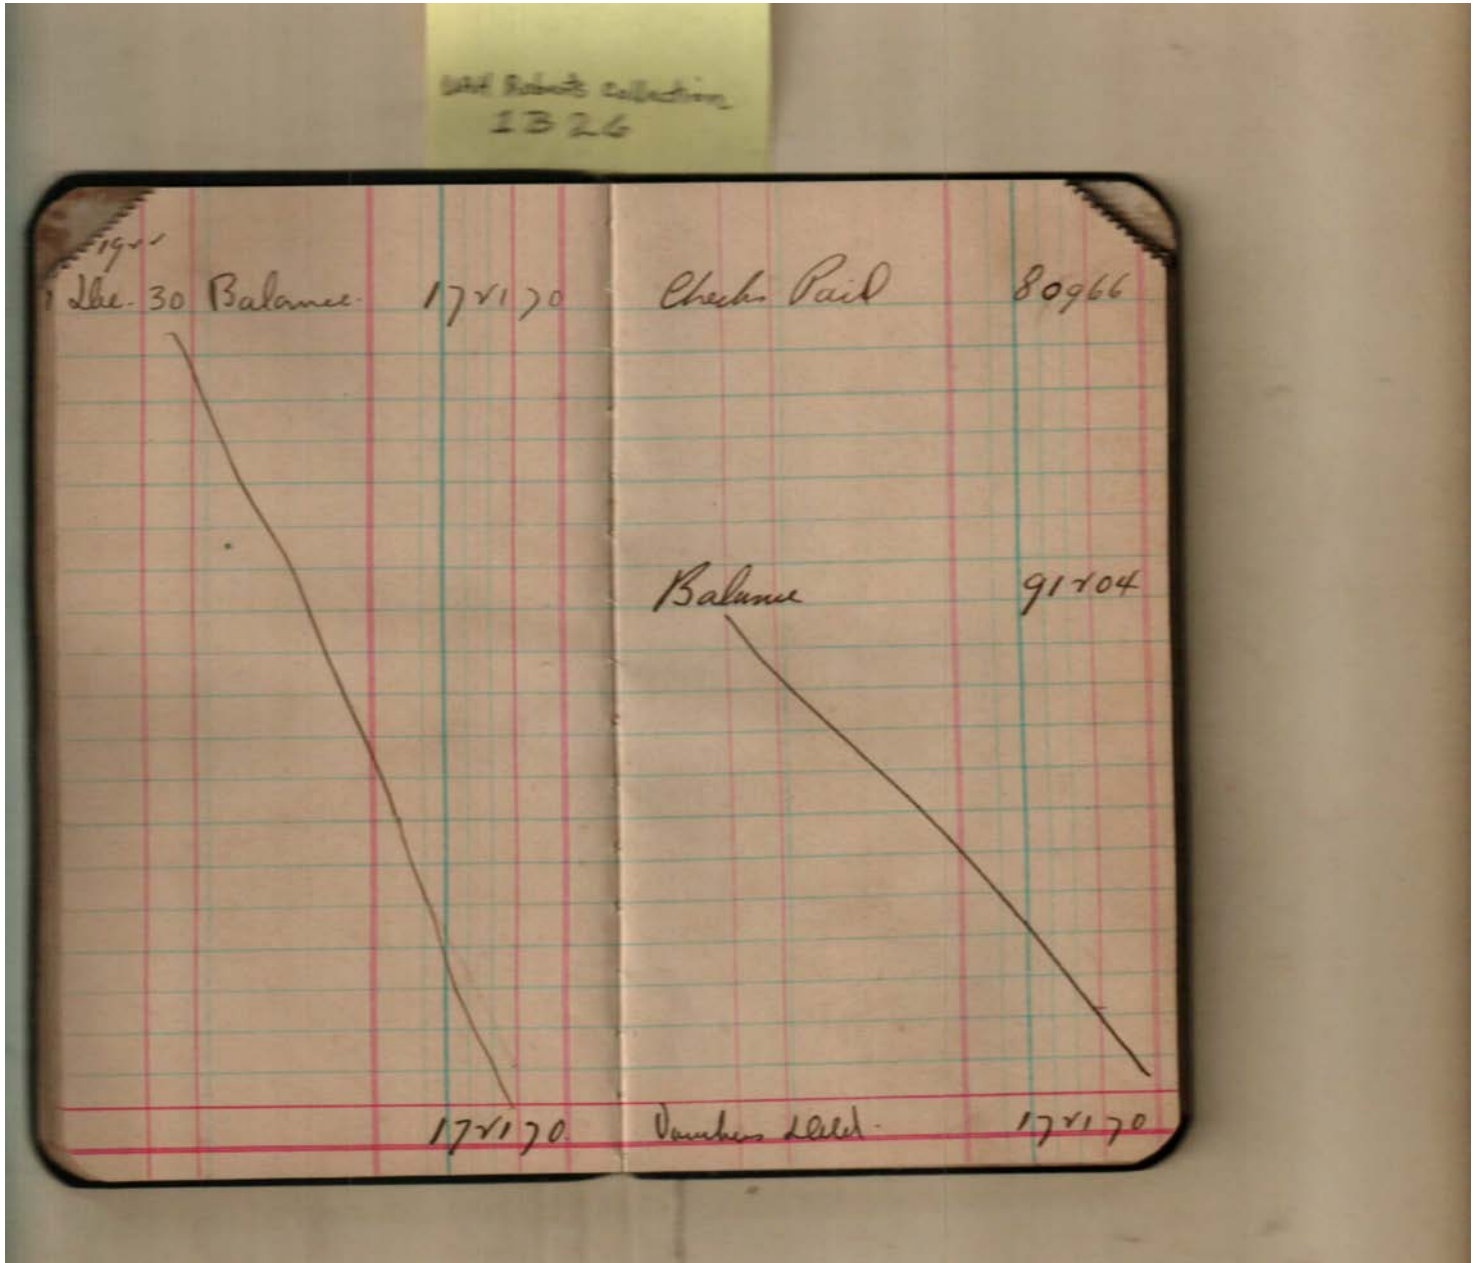 UAH Roberts Collection
1B26
1922
Dec. 30 Balance. 172170
Checks Paid 80966
Balance 91204
172170
Vouchers 172170